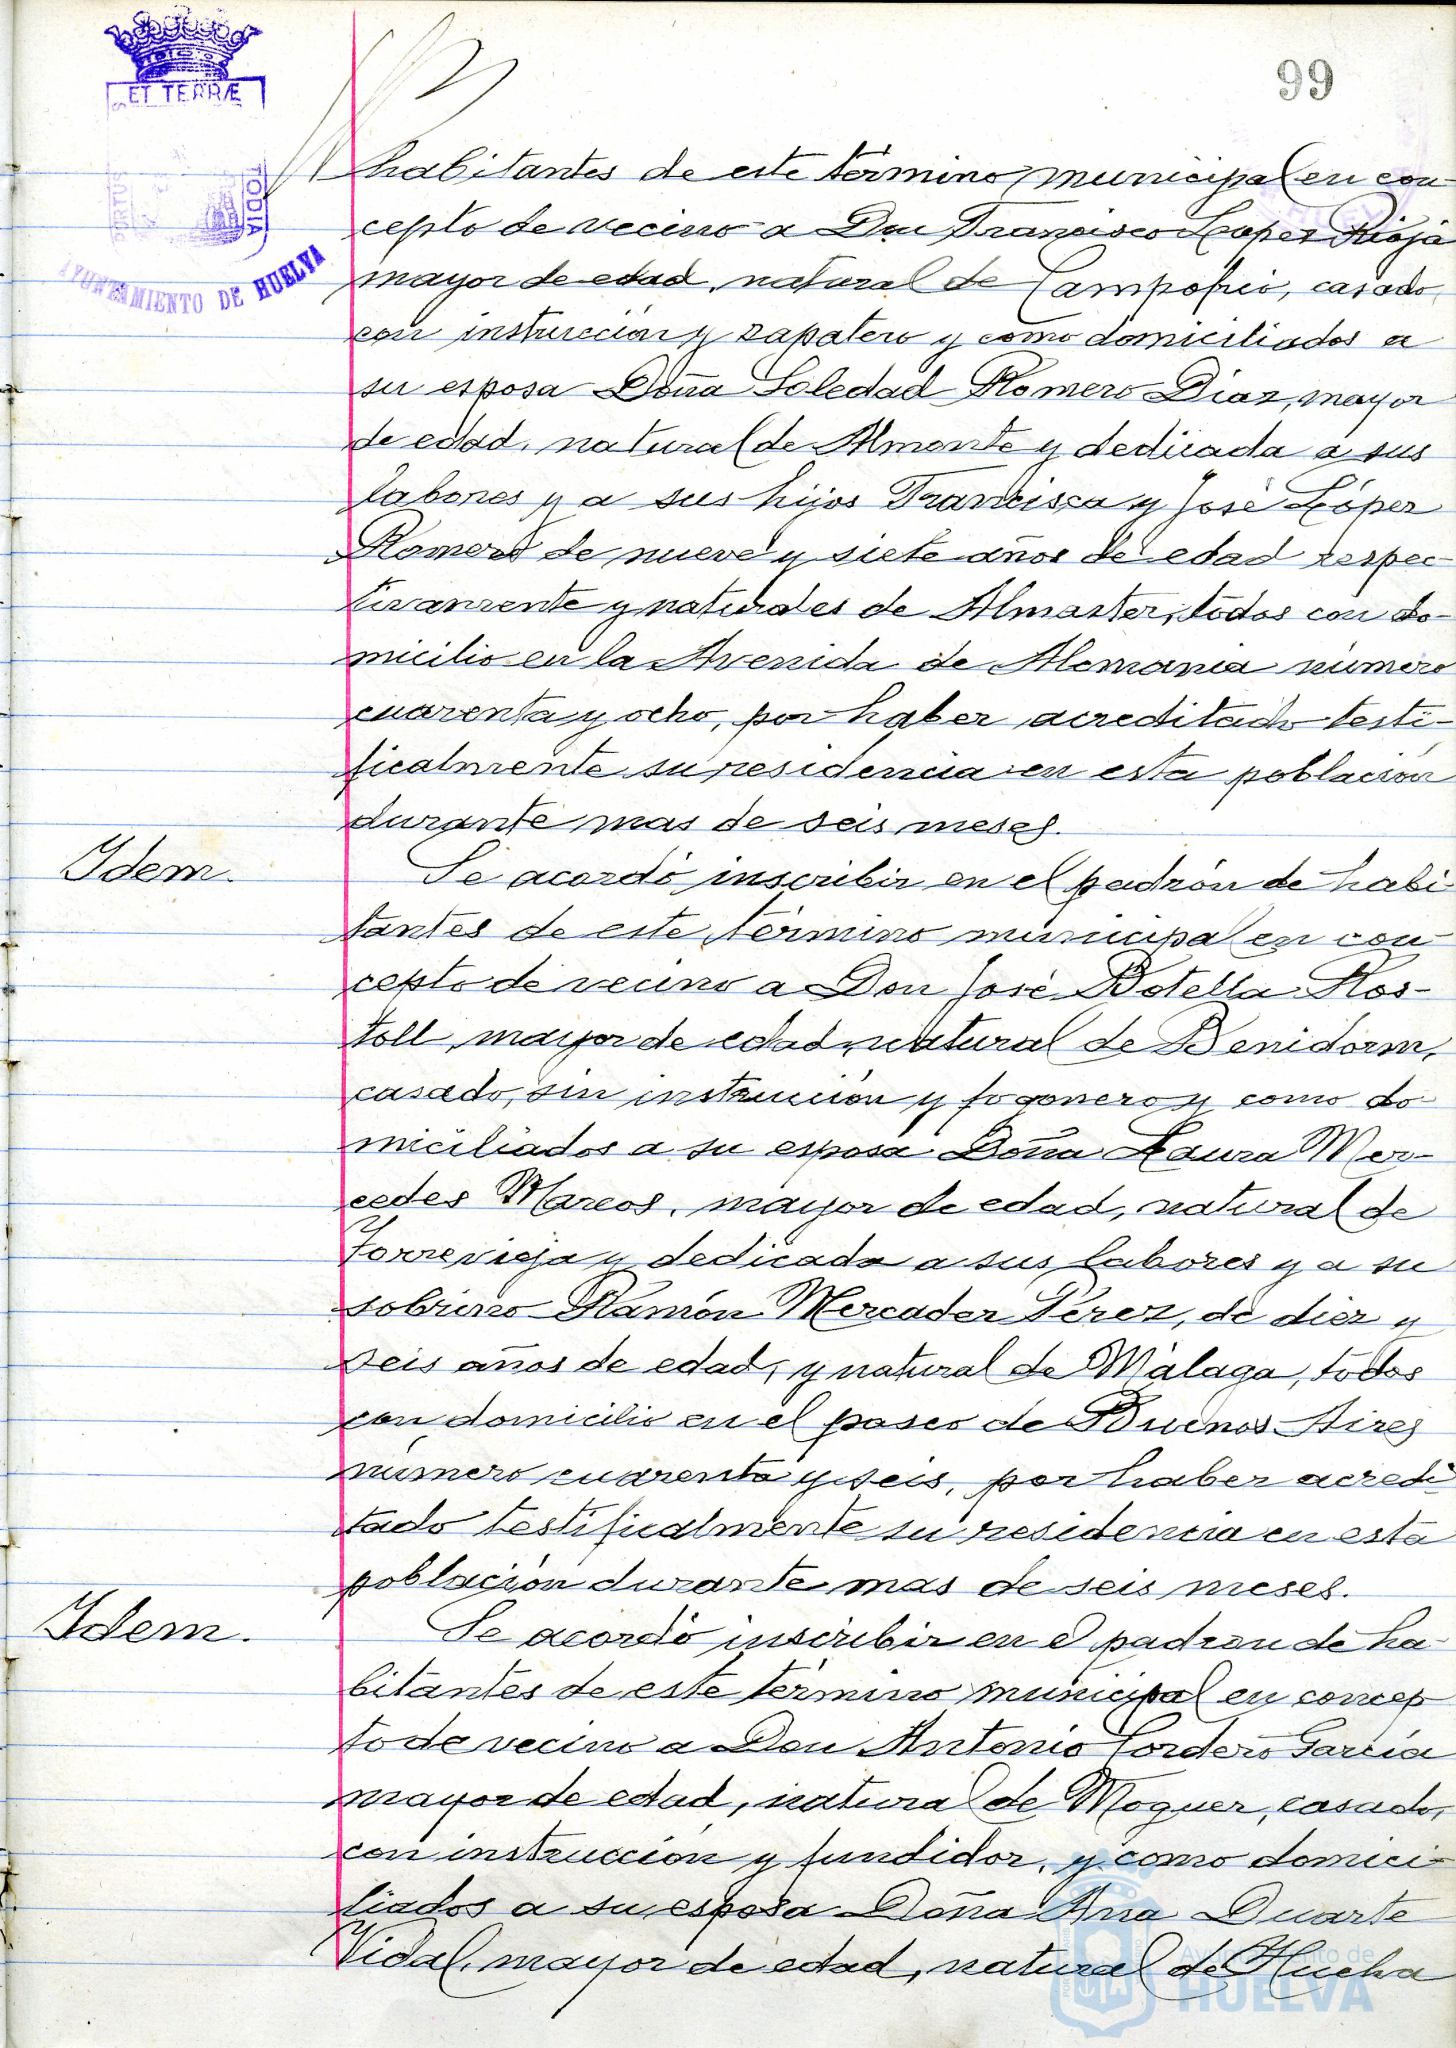 99
ET TERRÆ
PORTUS
TODIA
AYUNTAMIENTO DE HUELVA
habitantes de este término municipal en con-
cepto de vecino a Don Francisco Lopez Rioja
mayor de edad, natural de Campofrio, casado,
con instruccion y zapatero y como domiciliados a
su esposa Doña Soledad Romero Diaz, mayor
de edad, natural de Almonte y dedicada a sus
labores y a sus hijos Francisca y José López
Romero de nueve y siete años de edad respec-
tivamente y naturales de Almaster, todos con do-
micilio en la Avenida de Alemania número
cuarenta y ocho, por haber acreditado testi-
ficalmente su residencia en esta población
durante mas de seis meses.
Idem.
Se acordó inscribir en el padrón de habi-
tantes de este término municipal en con-
cepto de vecino a Don José Botella Ros-
toll, mayor de edad, natural de Benidorm,
casado, sin instrucción y fogonero y como do-
miciliados a su esposa Doña Laura Mer-
cedes Marcos, mayor de edad, natural de
Torrevieja y dedicada a sus labores y a su
sobrino Ramón Mercader Pérez, de diez y
seis años de edad, y natural de Málaga, todos
con domicilio en el paseo de Buenos Aires
número cuarenta y seis, por haber acredi-
tado testificalmente su residencia en esta
población durante mas de seis meses.
Idem.
Se acordó inscribir en el padron de ha-
bitantes de este término municipal en concep
to de vecino a Don Antonio Cordero García
mayor de edad, natural de Moguer, casado,
con instrucción y fundidor, y como domici-
liados a su esposa Doña Ana Duarte
Vidal, mayor de edad, natural de Huelva
Ayuntamiento de
HUELVA